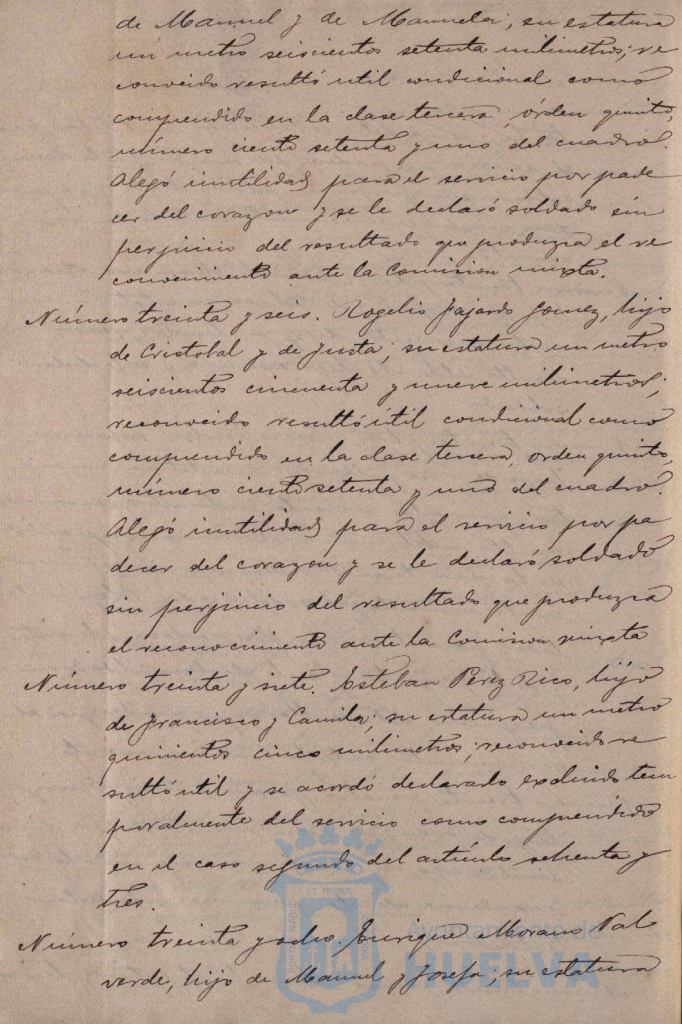 de Manuel y de Manuela; su estatura
un metro seiscientos setenta milimetros; re
conocido resultó util condicional como
comprendido en la clase tercera, órden quinto,
número ciento setenta y uno del cuadro.
Alegó inutilidad para el servicio por pade
cer del corazon y se le declaró soldado sin
perjuicio del resultado que produzca el re
conocimiento ante la Comision mixta.
Número treinta y seis. Rogelio Fajardo Gomez, hijo
de Cristobal y de Justa; su estatura un metro
seiscientos cincuenta y nueve milimetros;
reconocido resultó útil condicional como
comprendido en la clase tercera, orden quinto,
número ciento setenta y uno del cuadro.
Alegó inutilidad para el servicio por pa
decer del corazon y se le declaró soldado
sin perjuicio del resultado que produzca
el reconocimiento ante la Comision mixta
Número treinta y siete. Esteban Perez Rico, hijo
de Francisco y Camila; su estatura un metro
quinientos cinco milimetros; reconocido re
sultó util y se acordó declarado excluido tem
poralmente del servicio como comprendido
en el caso segundo del artículo ochenta y
tres.
Número treinta y ocho. Enrique Morano Val
verde, hijo de Manuel y Josefa; su estatura
Ayuntamiento de
HUELVA